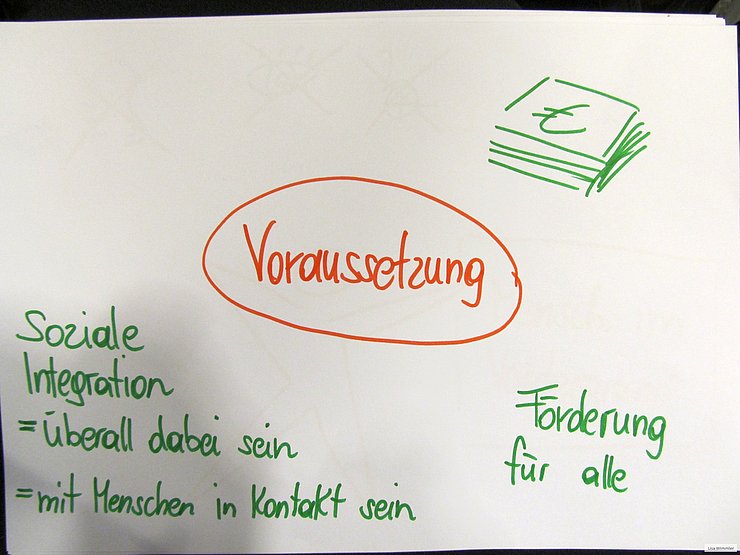 €
Voraussetzung
Soziale
Integration
= überall dabei sein
= mit Menschen in Kontakt sein
Förderung
für alle
Lisa Wimmler